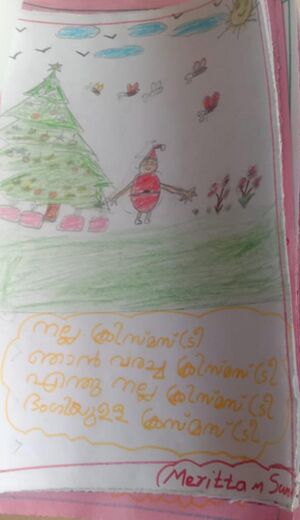 നല്ല ക്രിസ്മസ് ട്രീ
ഞാൻ വരച്ച ക്രിസ്മസ് ട്രീ
എന്തു നല്ല ക്രിസ്മസ് ട്രീ
ഭംഗിയുള്ള ക്രസ്മസ് ട്രീ
Meritta m